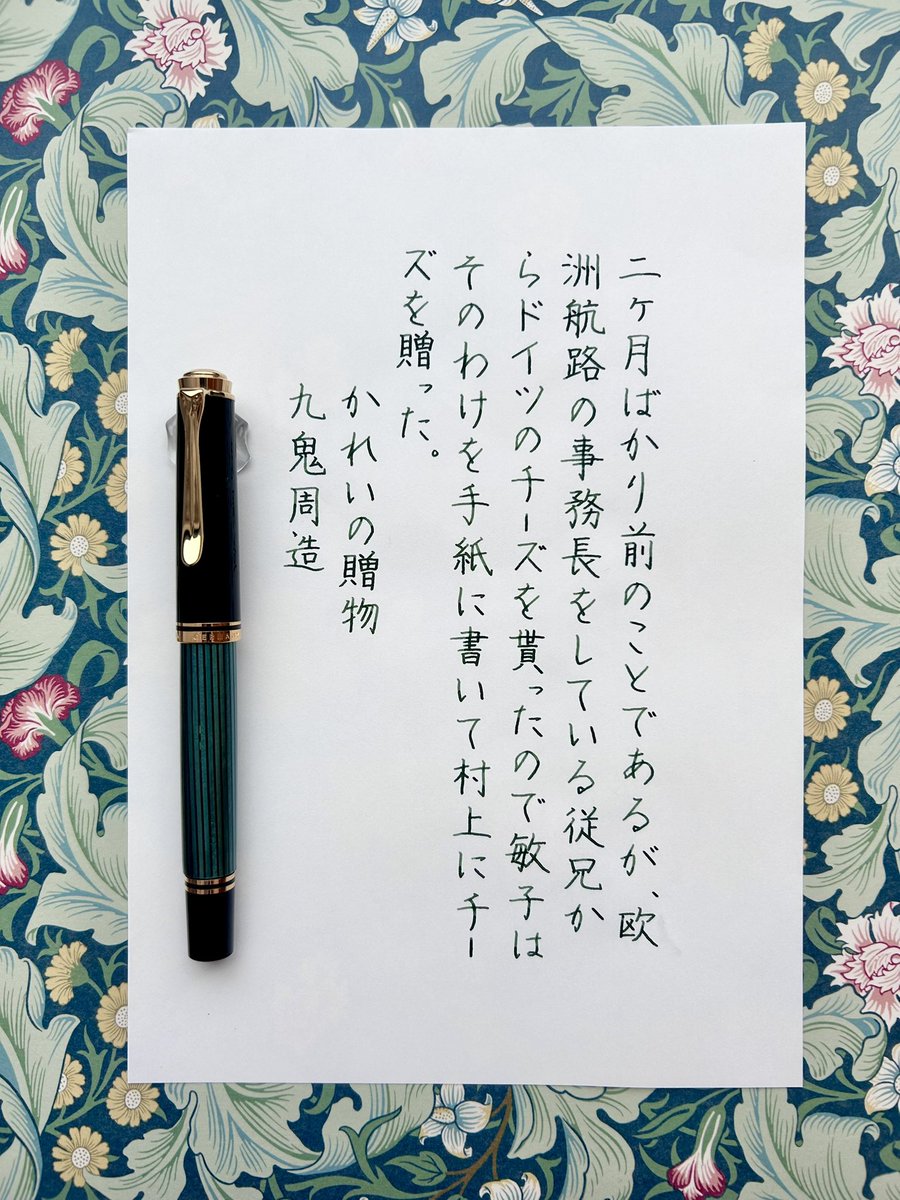 二ケ月ばかり前のことであるが、欧
洲航路の事務長をしている従兄か
らドイツのチーズを貰ったので敏子は
そのわけを手紙に書いて村上にチー
ズを贈った。
かれいの贈物
九鬼周造